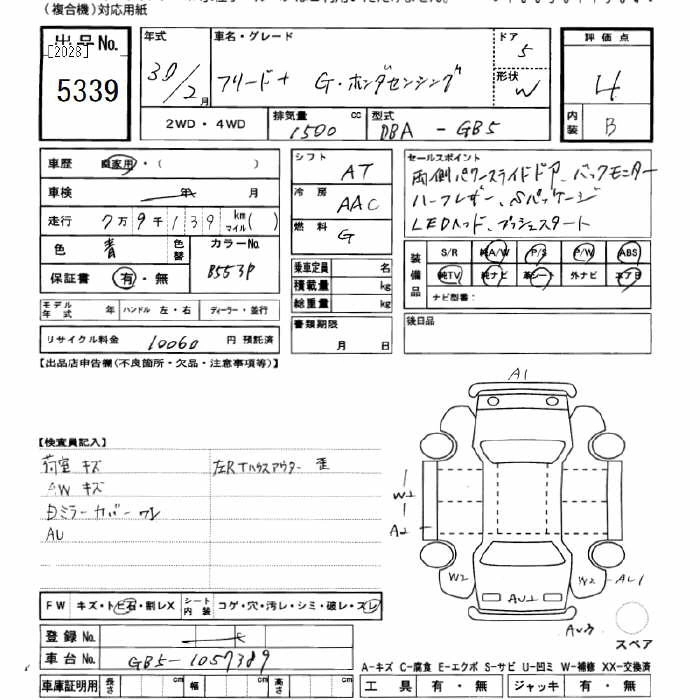 (複合機)対応用紙
出品No. [2028]
5339
年式 30/2月
車名・グレード フリード+ G・ホンダセンシング
ドア 5
形状 W
評価点 4
内装 B
2WD・4WD
排気量 1500 cc
型式 DBA-GB5
車歴 自家用・( )
車検 年 月
走行 7万9千139 km マイル( )
色 青 色替
カラーNo. B553P
保証書 有・無
モデル年式 年 ハンドル 左・右 ディーラー・並行
リサイクル料金 10060 円 預託済
シフト AT
冷房 AAC
燃料 G
乗車定員 名
積載量 kg
総重量 kg
書類期限 月 日
セールスポイント
両側パワースライドドア、バックモニター
ハーフレザー、Sパッケージ
LEDヘッド、プッシュスタート
装備品
S/R 純A/W P/S P/W ABS
純TV 純ナビ 革シート 外ナビ エアB
ナビ型番:
後日品
【出品店申告欄(不良箇所・欠品・注意事項等)】
【検査員記入】
荷室 キズ
左RTハウスアウター 歪
AW キズ
Dミラーカバーワレ
AU
FW キズ・トビ石・割レX シート内装 コゲ・穴・汚レ・シミ・破レ・スレ
登録No.
車台No. GB5-1057389
車庫証明用 長さ cm 幅 cm 高さ cm
A1
W2
A2
W2
AU2
W2
AU1
AU3
スペア
A-キズ C-腐食 E-エクボ S-サビ U-凹ミ W-補修 XX-交換済
工具 有・無 ジャッキ 有・無